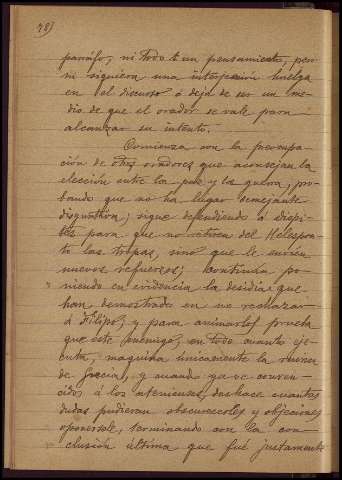 78)
párrafo, ni todo un pensamiento, pero
ni siquiera una interjección huelga
en el discurso ó deja de ser un me-
dio de que el orador se vale para
alcanzar su intento.
Comienza con la preocupa-
ción de otros oradores que aconsejan la
elección entre la paz y la guerra, pro-
bando que no ha lugar semejante
disyuntiva; sigue defendiendo á Diopi-
tes para que no retiren del Helespon-
to las tropas, sino que le envíen
nuevos refuerzos; continúa po-
niendo en evidencia la desidia que
han demostrado en no rechazar
á Filipo, y para animarlos prueba
que este enemigo, en todo cuanto eje-
cuta, maquina únicamente la ruina
de Grecia, y cuando ya ve conven-
cidos á los atenienses, deshace cuantas
dudas pudieran obscurecerles y objeciones
oponérsele, terminando con la con-
clusión última que fué justamente